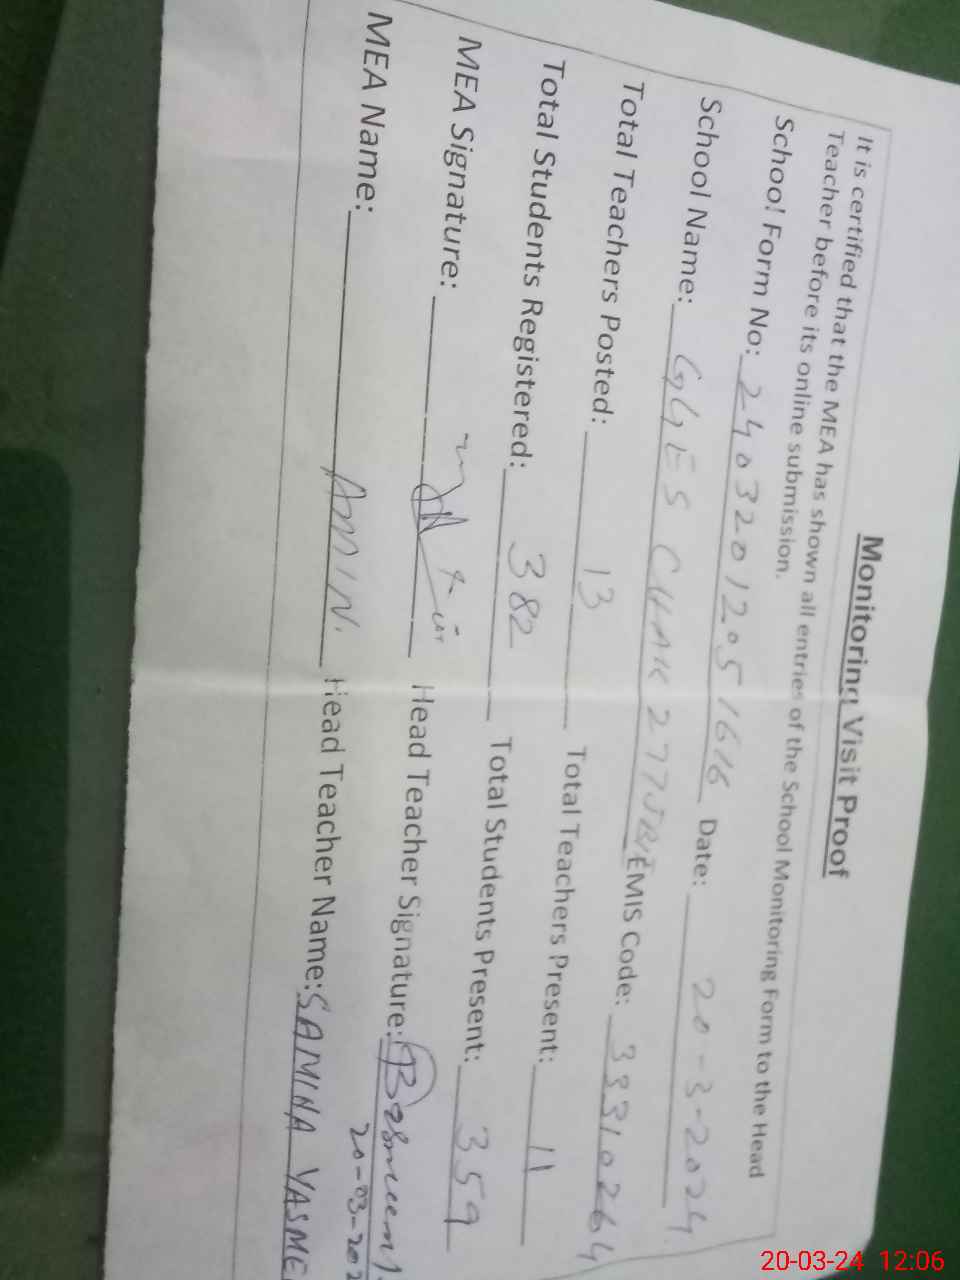 Monitoring Visit Proof
It is certified that the MEA has shown all entries of the School Monitoring Form to the Head
Teacher before its online submission.
School Form No: 24032012051616 Date: 20-3-2024
School Name: GGES CHAK 277JB EMIS Code: 33310264
Total Teachers Posted: 13 Total Teachers Present: 11
Total Students Registered: 382 Total Students Present: 359
MEA Signature: Head Teacher Signature:
20-03-202
MEA Name: AMIN. Head Teacher Name: SAMINA YASME
20-03-24 12:06